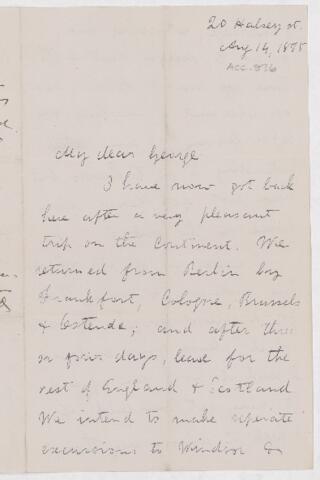 20 Halsey St.
Aug 14, 1875
ACC. 836
My dear George
I have now got back
here after a very pleasant
trip on the Continent. We
returned from Berlin by
Frankfort, Cologne, Brussels
& Ostende; and after three
or four days, leave for the
rest of England & Scotland
We intend to make separate
excursions to Windsor &